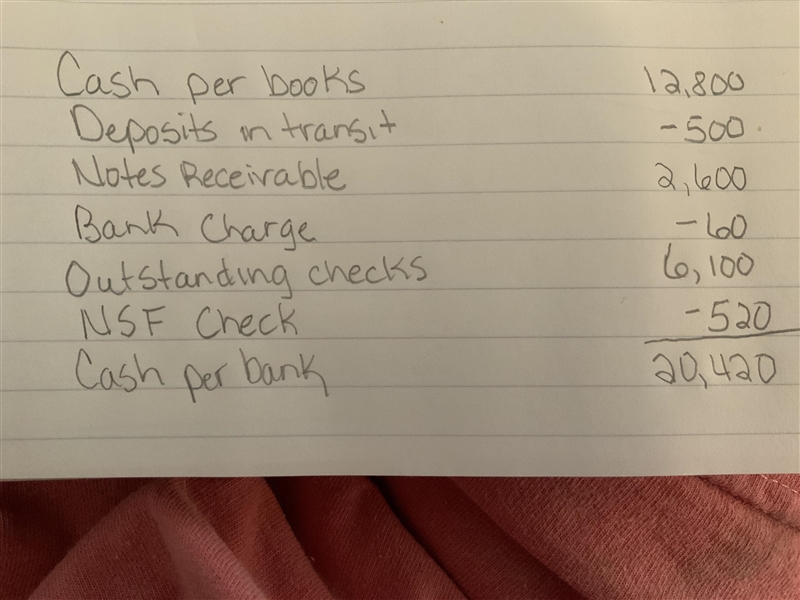 Cash per books 12,800
Deposits in transit -500
Notes Receivable 2,600
Bank Charge -60
Outstanding checks 6,100
NSF Check -520
Cash per bank 20,420